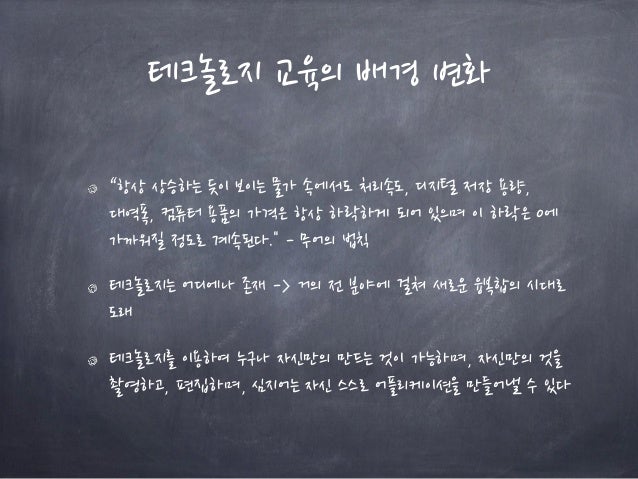 테크놀로지 교육의 배경 변화
"항상 상승하는 듯이 보이는 물가 속에서도 처리속도, 디지털 저장 용량,
대역폭, 컴퓨터 용품의 가격은 항상 하락하게 되어 있으며 이 하락은 0에
가까워질 정도로 계속된다." - 무어의 법칙
테크놀로지는 어디에나 존재 -> 거의 전 분야에 걸쳐 새로운 융복합의 시대로
도래
테크놀로지를 이용하여 누구나 자신만의 만드는 것이 가능하며, 자신만의 것을
촬영하고, 편집하며, 심지어는 자신 스스로 어플리케이션을 만들어낼 수 있다